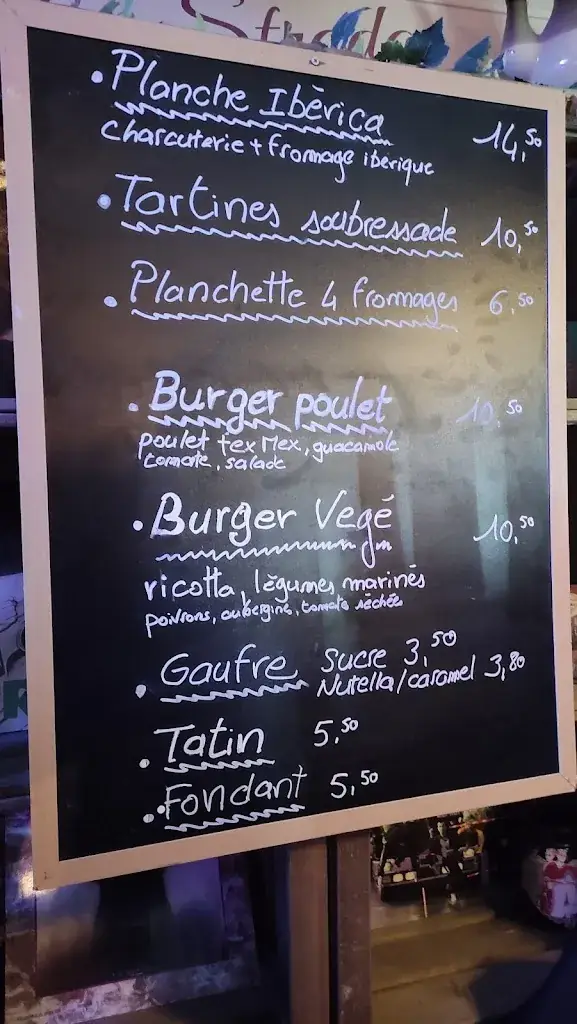 S'frado
• Planche Ibèrica 14,50
charcuterie + fromage iberique
• Tartines soubressade 10,50
• Planchette 4 fromages 6,50
• Burger poulet 10,50
poulet tex Mex, guacamole
tomate, salade
• Burger Vegé 10,50
ricotta, légumes marinés
poivrons, aubergine, tomate séchées
• Gaufre Sucre 3,50
Nutella/caramel 3,80
• Tatin 5,50
• Fondant 5,50